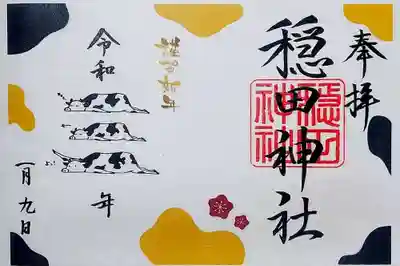 奉拝
穏田神社
穏田神社
謹賀新年
令和
年
一月九日